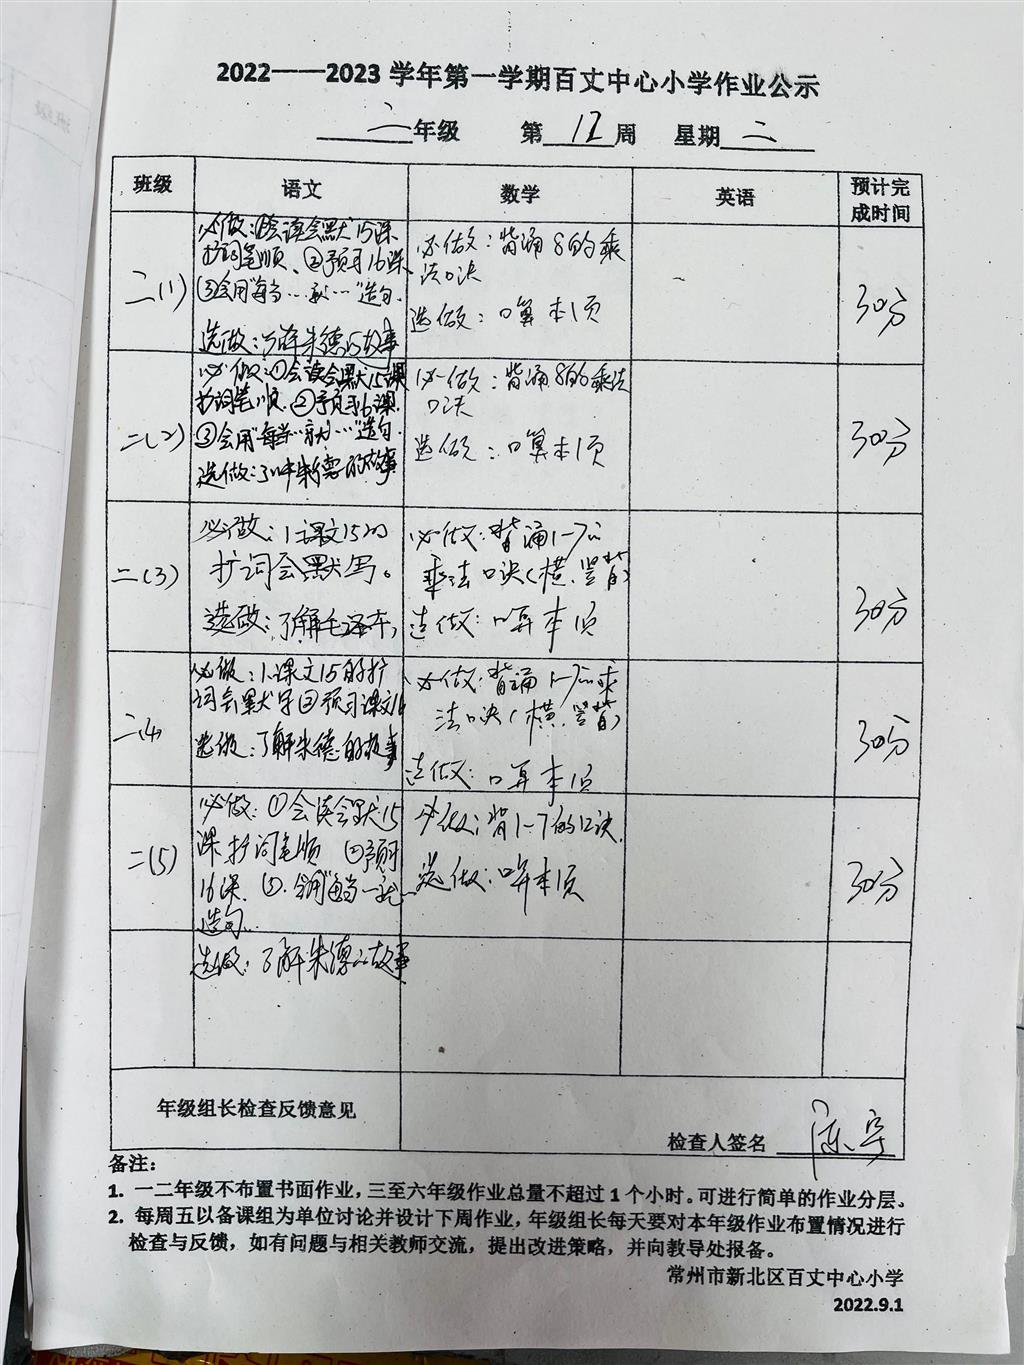 2022——2023 学年第一学期百丈中心小学作业公示
二年级 第12周 星期二
班级 语文 数学 英语 预计完
成时间
二(1)
必做:①会读会默15课
扩词笔顺、②预习16课、
③会用“每当…就…”造句.
选做:了解朱德的故事
必做:背诵8的乘
法口诀
选做:口算本1页
30分
二(2)
必做:①会读会默15课
扩词笔顺.②预习16课.
③会用“每当…就…”造句.
选做:了解朱德的故事
必做:背诵8的乘法
口诀
选做:口算本1页
30分
二(3)
必做:1.课文15的
扩词会默写。
选做:了解毛泽东,
必做:背诵1-7的
乘法口诀(横.竖背)
选做:口算本1页
30分
二(4)
必做:1.课文15的扩
词会默写②预习课文16
选做:了解朱德的故事
必做:背诵1-7的乘
法口诀(横.竖背)
选做:口算本1页
30分
二(5)
必做:①会读会默15
课扩词笔顺 ②预习
16课.③.会用“每当…就…
造句.
选做:了解朱德的故事
必做:背1-7的口诀.
选做:口算本1页
30分
年级组长检查反馈意见
检查人签名
备注:
1. 一二年级不布置书面作业,三至六年级作业总量不超过1个小时。可进行简单的作业分层。
2. 每周五以备课组为单位讨论并设计下周作业,年级组长每天要对本年级作业布置情况进行
检查与反馈,如有问题与相关教师交流,提出改进策略,并向教导处报备。
常州市新北区百丈中心小学
2022.9.1